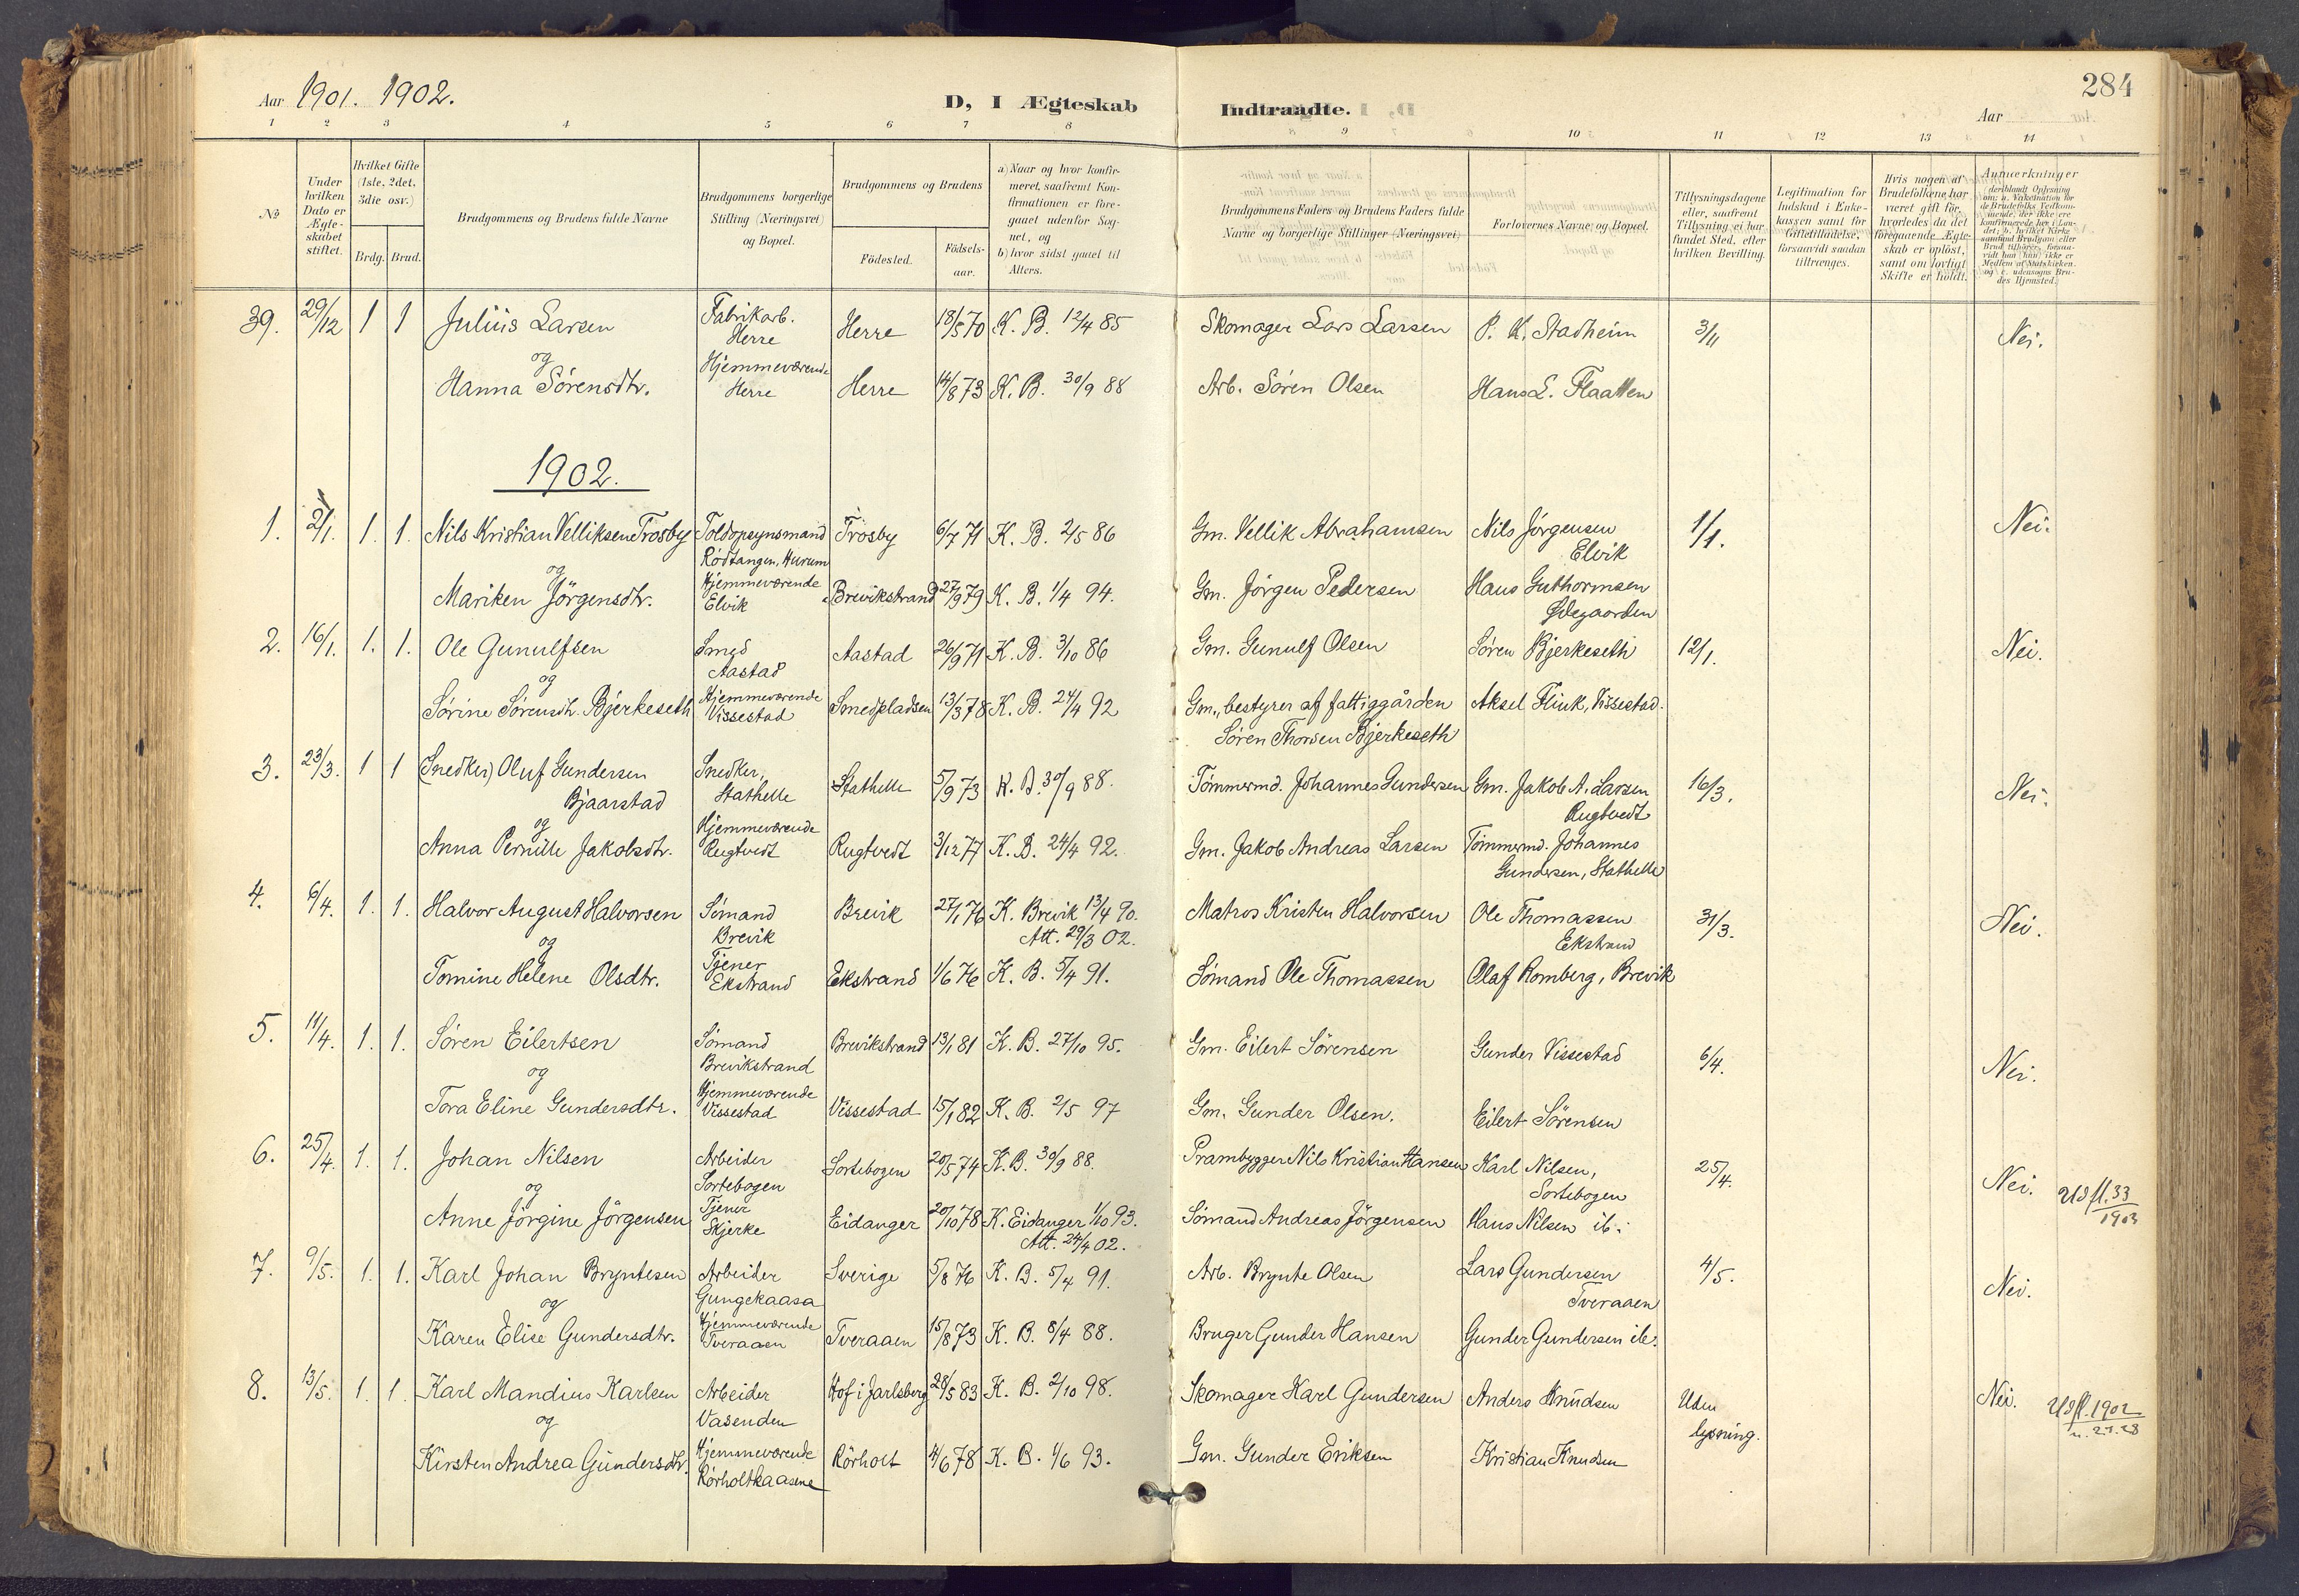 284
Aar 1901. 1902.
D, I Ægteskab Indtraadte.
Aar
1 2 3 4 5 6 7 8 9 10 11 12 13 14
№
Under hvilken Dato er Ægteskabet stiftet.
Hvilket Gifte (1ste, 2det, 3die osv.)
Brdg. Brud.
Brudgommens og Brudens fulde Navne
Brudgommens borgerlige Stilling (Næringsvei) og Bopæl.
Brudgommens og Brudens
Fødested.
Fødselsaar.
a) Naar og hvor konfirmeret, saafremt Konfirmationen er foregaaet udenfor Sognet, og
b) hvor sidst gaaet til Alters.
Brudgommens Faders og Brudens Faders fulde Navne og borgerlige Stillinger (Næringsvei)
Forlovernes Navne og Bopæl.
Tillysningsdagene eller, saafremt Tillysning ei har fundet Sted, efter hvilken Bevilling.
Legitimation for Indskud i Enkekassen samt for Giftetilladelse, forsaavidt saadan tiltrænges.
Hvis nogen af Brudefolkene har været gift før, hvorledes da det foregaaende Ægteskab er opløst, samt om lovligt Skifte er holdt.
Anmærkninger
39. 29/12 1 1 Julius Larsen Fabrikarb. Herre Herre 18/5 70 K. B. 12/4 85 Skomager Lars Larsen P. K. Stadheim 3/11 Nei.
og
Hanna Sörensdtr. Hjemmeværende Herre Herre 14/8 73 K. B. 30/9 88 Arb. Sören Olsen Hans L. Flaatten
1902.
1. 2/1. 1. 1. Nils Kristian Velliksen Trosby Toldopsynsmand Rödtangen, Hurum Trosby 6/7 71 K. B. 2/5 86 Gm. Vellik Abrahamsen Nils Jörgensen Elvik 1/1. Nei.
og
Mariken Jörgensdtr. Hjemmeværende Elvik Brevikstrand 27/9 79 K. B. 1/4 94. Gm. Jörgen Pedersen Hans Guthormsen Ödegaarden
2. 16/1. 1. 1. Ole Gunulfsen Smed Aastad Aastad 26/9 71 K. B. 3/10 86 Gm. Gunulf Olsen Sören Bjerkeseth 12/1. Nei.
og
Sörine Sörensdtr. Bjerkeseth Hjemmeværende Vissestad Smedpladsen 13/3 78 K. B. 24/4 92 Gm., bestyrer af fattiggården Sören Thorsen Bjerkeseth Aksel Flink, Vissestad.
3. 23/3. 1 1 (Snedker) Oluf Gundersen Bjaarstad Snedker, Stathelle Stathelle 5/9 73 K. B. 30/9 88. Tömmermd. Johannes Gundersen Gm. Jakob A. Larsen Rugtvedt 16/3. Nei.
og
Anna Pernille Jakobsdtr. Hjemmeværende Rugtvedt Rugtvedt 3/12 77 K. B. 24/4 92. Gm. Jakob Andreas Larsen Tömmermd. Johannes Gundersen, Stathelle
4. 6/4. 1. 1. Halvor August Halvorsen Sömand Brevik Brevik 27/1 76 K. Brevik 13/4 90. Att. 29/3 02. Matros Kristen Halvorsen Ole Thomassen Ekstrand 31/3. Nei.
og
Tomine Helene Olsdtr. Tjener Ekstrand Ekstrand 1/6 76 K. B. 5/4 91. Sömand Ole Thomassen Olaf Romberg, Brevik
5. 11/4. 1. 1. Sören Eilertsen Sömand Brevikstrand Brevikstrand 13/1 81 K. B. 27/10 95. Gm. Eilert Sörensen Gunder Vissestad 6/4. Nei.
og
Tora Eline Gundersdtr. Hjemmeværende Vissestad Vissestad 15/1 82 K. B. 2/5 97 Gm. Gunder Olsen. Eilert Sörensen
6. 25/4. 1. 1. Johan Nilsen Arbeider Sortebogen Sortebogen 20/5 74 K. B. 30/9 88. Prambygger Nils Kristian Hansen Karl Nilsen, Sortebogen 25/4. Nei. Udfl. 33 1903
og
Anne Jörgine Jörgensen Tjener Skjerke Eidanger 20/10 78 K. Eidanger 1/10 93. Att. 24/4 02. Sömand Andreas Jörgensen Hans Nilsen ib.
7. 9/5. 1. 1. Karl Johan Bryntesen Arbeider Gungekaasa Sverige 5/8 76 K. B. 5/4 91. Arb. Brynte Olsen Lars Gundersen Tveraaen 4/5. Nei.
og
Karen Elise Gundersdtr. Hjemmeværende Tveraaen Tveraaen 15/8 73 K. B. 8/4 88. Bruger Gunder Hansen Gunder Gundersen ib.
8. 13/5. 1. 1. Karl Mandius Karlsen Arbeider Vasenden Hof i Jarlsberg 28/5 83 K. B. 2/10 98. Skomager Karl Gundersen Anders Knudsen Uden lysning. Nei. Udfl. 1902
og
Kirsten Andrea Gundersdtr. Hjemmeværende Rörholtkaasene Rörholt 4/6 78 K. B. 1/6 93. Gm. Gunder Eriksen Kristian Knudsen